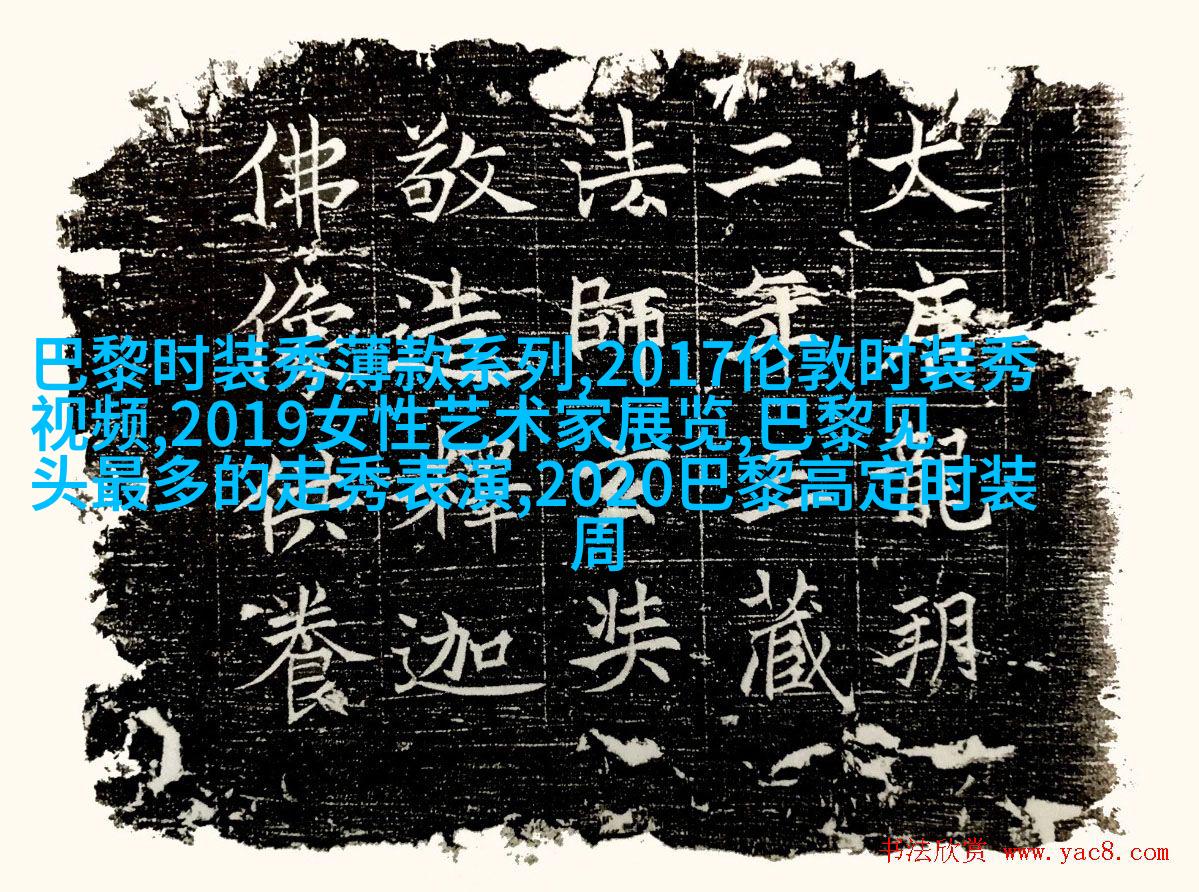 大唐龍朔
二年三藏
法師玄奘
敬造釋迦
佛像供養
巴黎时装秀薄款系列,2017伦敦时装秀
视频,2019女性艺术家展览,巴黎见
头最多的走秀表演,2020巴黎高定时装
周
书法欣赏 www.yac8.com